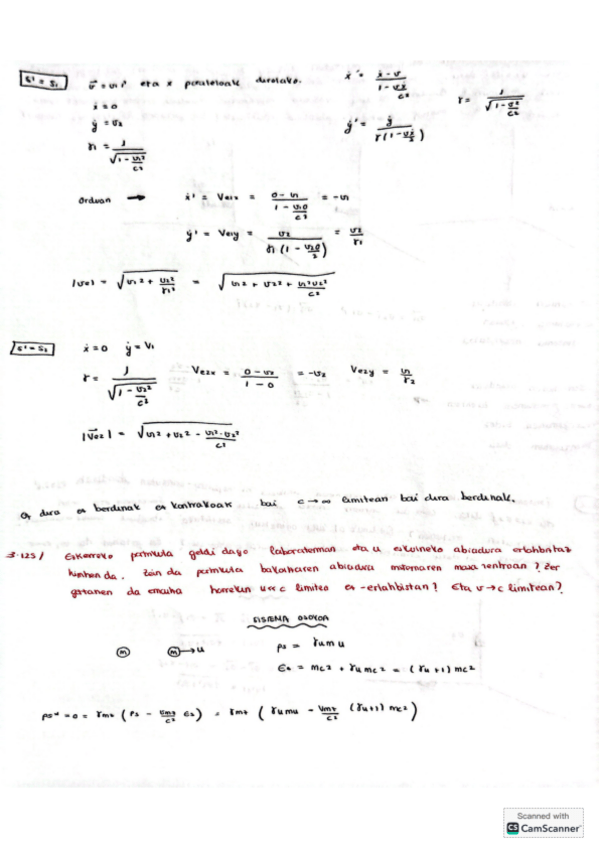 S' = S₁  v⃗ = v₁ î eta x paraleloak direlako.  ẋ' = (ẋ - v) / (1 - vẋ/c²)  γ = 1 / √(1 - v²/c²)
ẋ = 0
ẏ = v₂  ẏ' = ẏ / (γ(1 - vẋ/c²))
γ₁ = 1 / √(1 - v₁²/c²)
Orduan → ẋ' = Ve1x = (0 - v₁) / (1 - v₁0/c²) = -v₁
ẏ' = Ve1y = v₂ / (γ₁(1 - v₂0/2)) = v₂/γ₁
|ve| = √(v₁² + v₂²/γ₁²) = √(v₁² + v₂² + v₁²v₂²/c²)
S' = S₂  ẋ = 0  ẏ = V₁
γ = 1 / √(1 - v₂²/c²)  Ve2x = (0 - v₂) / (1 - 0) = -v₂  Ve2y = v₁/γ₂
|V⃗e2| = √(v₁² + v₂² - v₁²·v₂²/c²)
Ez dira ez berdinak ez kontrakoak bai c → ∞ limitean bai dira berdinak.
3.125/ Ezkerreko partikula geldi dago laborategian eta u eskuineko abiadura erlatibistaz
higitzen da. Zein da partikula bakoitzaren abiadura sistemaren masa zentroan? Zer
gertatzen da emaitza horrekin u≪c limitea ez-erlatibistan? Eta v→c limitean?
SISTEMA OSOKOA
m  m → u  ps = γu m u
Es = mc² + γu mc² = (γu + 1) mc²
ps* = 0 = γmz (ps - Vmz/c² Es) = γmz (γu mu - Vmz/c² (γu+1) mc²)
Scanned with
CS CamScanner